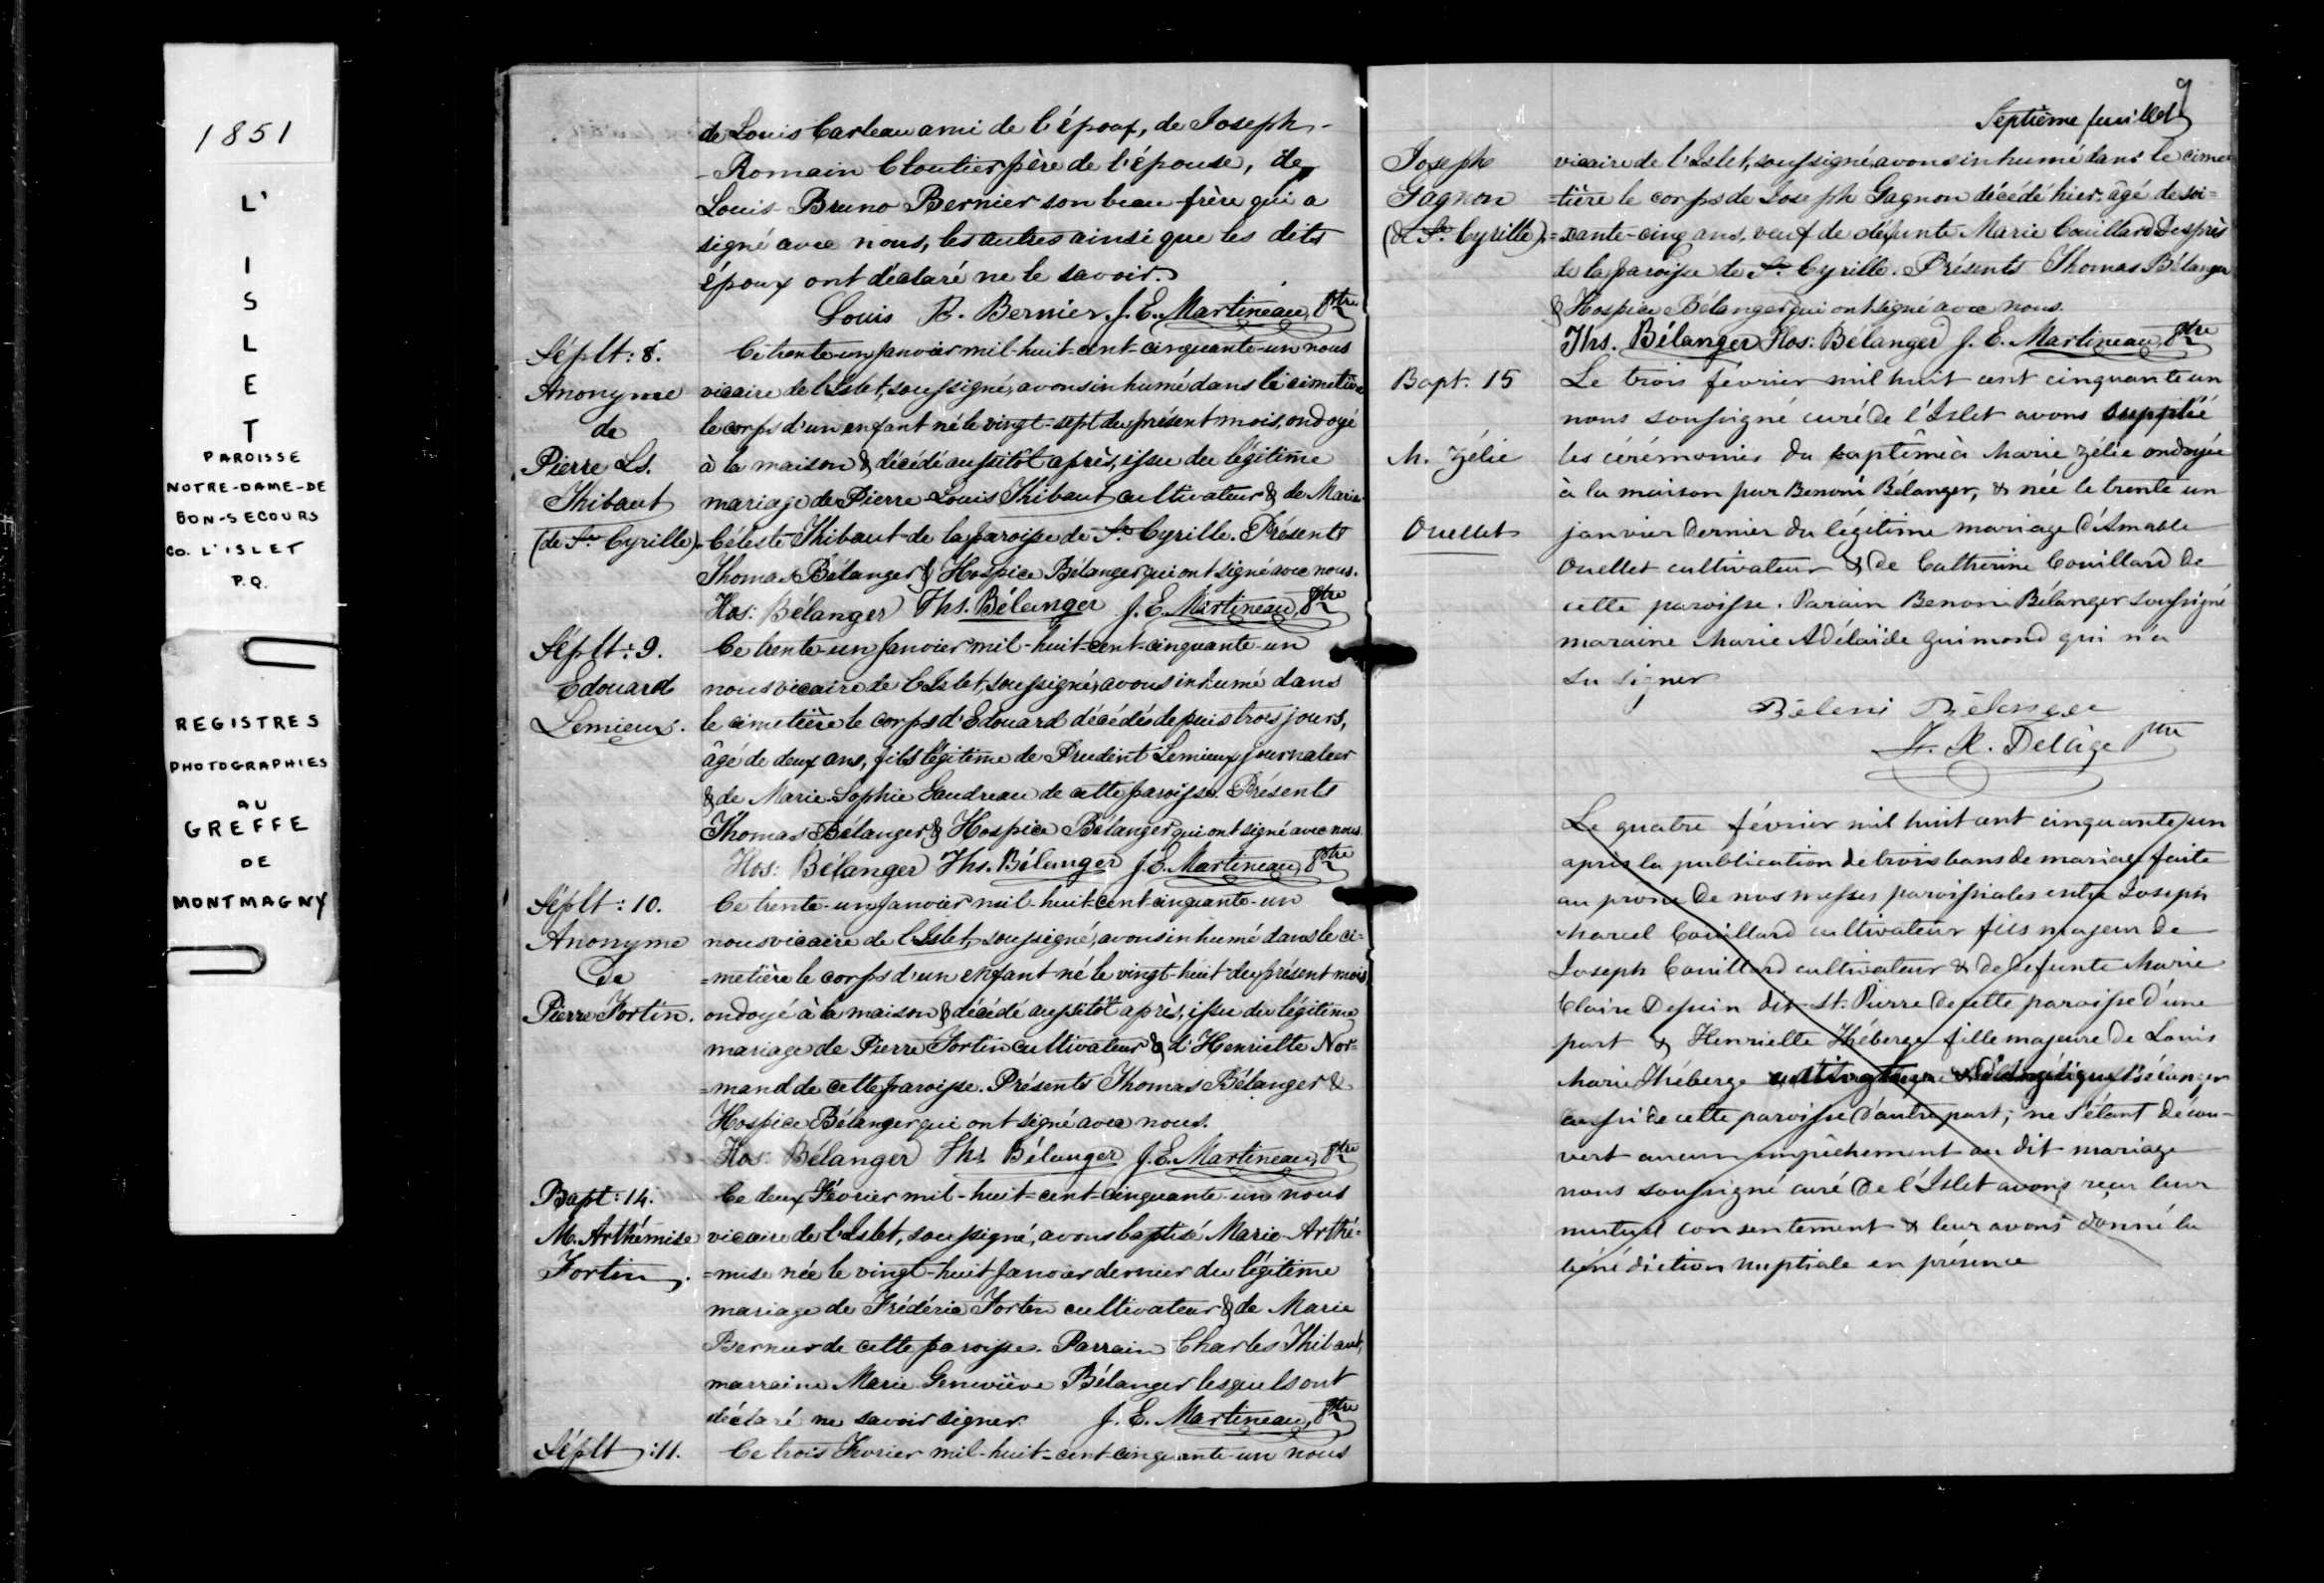 1851
L'
I
S
L
E
T
PAROISSE
NOTRE-DAME-DE
BON-SECOURS
CO. L'ISLET
P.Q.
REGISTRES
PHOTOGRAPHIES
AU
GREFFE
DE
MONTMAGNY
de Louis Carleau ami de l'époux, de Joseph-
-Romain Cloutier père de l'épouse, de
Louis Bruno Bernier son beau-frère qui a
signé avec nous, les autres ainsi que les dits
époux ont déclaré ne le savoir.
Louis B. Bernier. J. E. Martineau, Ptre
Séplt: 8.
Anonyme
de
Pierre Ls.
Thibaut
(de St. Cyrille).
Ce trente-un Janvier mil-huit-cent-cinquante-un nous
vicaire de l'Islet, soussigné, avons inhumé dans le cimetière
le corps d'un enfant né le vingt-sept du présent mois, ondoyé
à la maison & décédé aussitôt après, issu du légitime
mariage de Pierre-Louis Thibaut cultivateur & de Marie-
Céleste Thibaut de la paroisse de St. Cyrille. Présents
Thomas Bélanger & Hospice Bélanger qui ont signé avec nous.
Hos: Bélanger Ths. Bélanger J. E. Martineau, Ptre
Séplt: 9.
Edouard
Lemieux.
Ce trente-un Janvier mil-huit-cent-cinquante-un
nous vicaire de l'Islet, soussigné, avons inhumé dans
le cimetière le corps d'Edouard décédé depuis trois jours,
âgé de deux ans, fils légitime de Prudent Lemieux journalier
& de Marie-Sophie Gaudreau de cette paroisse. Présents
Thomas Bélanger & Hospice Bélanger qui ont signé avec nous.
Hos: Bélanger Ths. Bélanger J. E. Martineau, Ptre
Séplt: 10.
Anonyme
de
Pierre Fortin.
Ce trente-un Janvier mil-huit-cent-cinquante-un
nous vicaire de l'Islet, soussigné, avons inhumé dans le ci=
=metière le corps d'un enfant né le vingt-huit du présent mois
ondoyé à la maison & décédé aussitôt après, issu du légitime
mariage de Pierre Fortin cultivateur & d'Henriette Nor=
=mand de cette paroisse. Présents Thomas Bélanger &
Hospice Bélanger qui ont signé avec nous.
Hos: Bélanger Ths. Bélanger J. E. Martineau, Ptre
Bapt: 14.
M. Arthémise
Fortin.
Ce deux Février mil-huit-cent-cinquante-un nous
vicaire de l'Islet, soussigné, avons baptisé Marie-Arthé=
=mise née le vingt-huit Janvier dernier du légitime
mariage de Frédéric Fortin cultivateur & de Marie
Bernier de cette paroisse. Parrain Charles Thibaut,
marraine Marie Geneviève Bélanger lesquels ont
déclaré ne savoir signer. J. E. Martineau, Ptre
Séplt: 11.
Ce trois Fevrier mil-huit-cent-cinquante-un nous
9
Septième feuillet
Joseph
Gagnon
(de St. Cyrille).
vicaire de l'Islet, soussigné, avons inhumé dans le cime
=tière le corps de Joseph Gagnon décédé hier, âgé de soi=
=xante-cinq ans, veuf de défunte Marie Couillard Desprès
de la paroisse de St. Cyrille. Présents Thomas Bélanger
& Hospice Bélanger qui ont signé avec nous.
Ths. Bélanger Hos: Bélanger J. E. Martineau, Ptre
Bapt. 15
M. Zélie
Ouellet
Le trois février mil huit cent cinquante un
nous soussigné curé de l'Islet avons suppléé
les cérémonies du baptême à Marie Zélie ondoyée
à la maison par Benoni Bélanger, & née le trente un
janvier dernier du légitime mariage d'Amable
Ouellet cultivateur & de Catherine Couillard de
cette paroisse. Parain Benoni Bélanger soussigné
maraine Marie Adélaïde Guimond qui n'a
su signer
Béleni Bélanger
F. X. Delâge ptre
Le quatre février mil huit cent cinquante un
après la publication de trois bans de mariage faite
au prone de nos messes paroissiales entre Joseph
Marcel Couillard cultivateur fils majeur de
Joseph Couillard cultivateur & de defunte Marie
Claire Dessin dit St. Pierre de cette paroisse d'une
part & Henriette Théberge fille majeure de Louis
Marie Théberge cultivateur & d'Angélique Bélanger
aussi de cette paroisse d'autre part; ne s'étant décou-
vert aucun empêchement au dit mariage
nous soussigné curé de l'Islet avons reçu leur
mutuel consentement & leur avons donné la
bénédiction nuptiale en présence